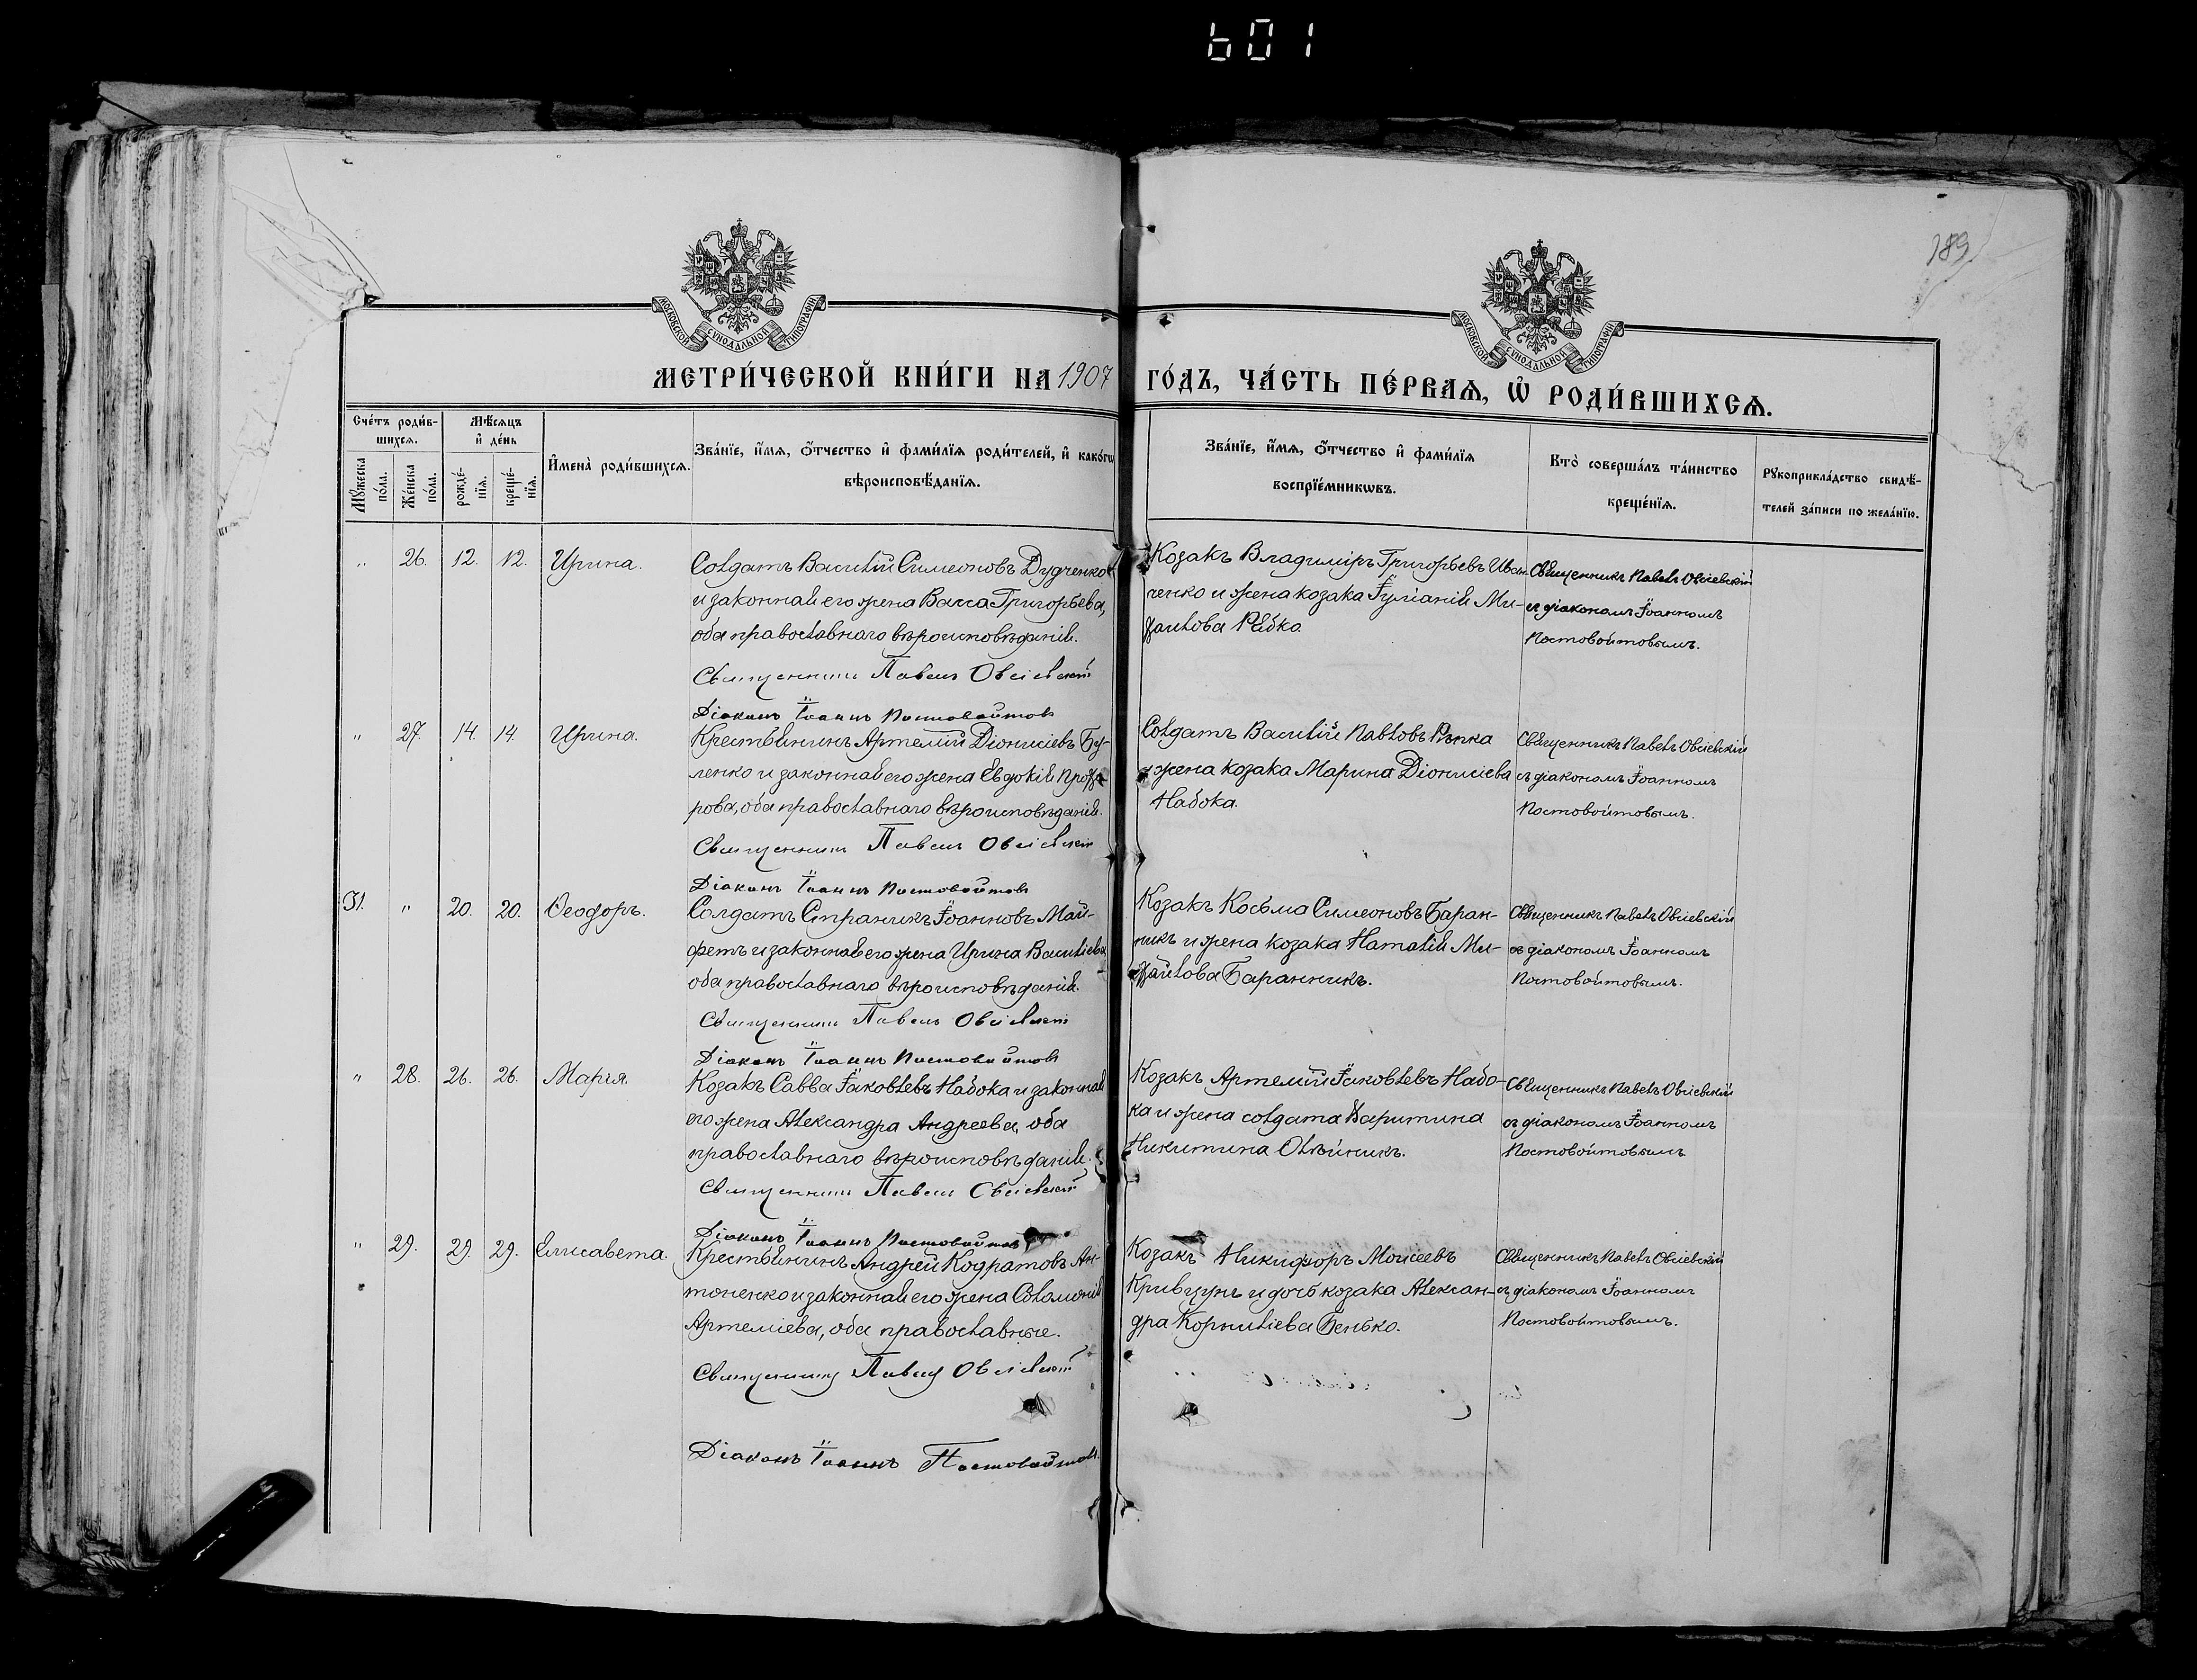 601
189
МОСКОВСКОЙ СѴНОДАЛЬНОЙ ТИПОГРАФІИ
МОСКОВСКОЙ СѴНОДАЛЬНОЙ ТИПОГРАФІИ
МЕТРИ́ЧЕСКОЙ КНИ́ГИ НА 1907 ГО́ДЪ, ЧА́СТЬ ПЕ́РВАѦ, Ѡ҆ РОДИ́ВШИХСѦ.
Сче́тъ роди́в-
шихсѧ.
Мѣ́сѧцъ
и҆ де́нь
Мꙋ́жеска
по́ла.
Же́нска
по́ла.
рожде́-
нїѧ.
креще́-
нїѧ.
И҆мена̀ роди́вшихсѧ.
Зва́нїе, и҆́мѧ, ѻ҆́тчество и҆ фами́лїѧ роди́телей, и҆ како́гѡ
вѣроисповѣ́данїѧ.
Зва́нїе, и҆́мѧ, ѻ҆́тчество и҆ фами́лїѧ
воспрїе́мникѡвъ.
Кто̀ соверша́лъ та́инство
креще́нїѧ.
Рꙋкоприкла́дство свидѣ́-
телей за́писи по жела́нїю.
„ 26. 12. 12. Ирина.
Солдатъ Василій Симеоновъ Дудченко
и законная его жена Васса Григорьева,
оба православнаго вѣроисповѣданія.
Священникъ Павелъ Овсіевскій
Діаконъ Іоаннъ Постовойтовъ
Козакъ Владиміръ Григорьевъ Иван-
ченко и жена козака Іуліанія Ми-
хаилова Рябко.
Священникъ Павелъ Овсіевскій
съ діакономъ Іоанномъ
Постовойтовымъ.
„ 27. 14. 14. Ирина.
Крестьянинъ Артемій Діонисіевъ Бу-
ленко и законная его жена Евдокія Проха-
рова, оба православнаго вѣроисповѣданія.
Священникъ Павелъ Овсіевскій
Діаконъ Іоаннъ Постовойтовъ
Солдатъ Василій Павловъ Рѣпка
и жена козака Марина Діонисіева
Набока.
Священникъ Павелъ Овсіевскій
съ діакономъ Іоанномъ
Постовойтовымъ.
31. „ 20. 20. Ѳеодоръ.
Солдатъ Страникъ Іоанновъ Май-
фетъ и законная его жена Ирина Василіева
оба православнаго вѣроисповѣданія.
Священникъ Павелъ Овсіевскій
Діаконъ Іоаннъ Постовойтовъ
Козакъ Косьма Симеоновъ Баран-
никъ и жена козака Наталія Ми-
хайлова Баранникъ.
Священникъ Павелъ Овсіевскій
съ діакономъ Іоанномъ
Постовойтовымъ.
„ 28. 26. 26. Марія.
Козакъ Савва Іаковлевъ Набока и законная
его жена Александра Андреева, оба
православнаго вѣроисповѣданія.
Священникъ Павелъ Овсіевскій
Діаконъ Іоаннъ Постовойтовъ
Козакъ Артемій Іаковлевъ Набо-
ка и жена солдата Харитина
Никитина Олѣйникъ.
Священникъ Павелъ Овсіевскій
съ діакономъ Іоанномъ
Постовойтовымъ
„ 29. 29. 29. Елисавета.
Крестьянинъ Андрей Кодратовъ Ан-
тоненко и законная его жена Соломонія
Артеміева, оба православные.
Священникъ Павелъ Овсіевскій
Діаконъ Іоаннъ Постовойтовъ.
Козакъ Никифоръ Моисеевъ
Кривцунъ и дочь козака Алексан-
дра Корниліева Бенько.
Священникъ Павелъ Овсіевскій
съ діакономъ Іоанномъ
Постовойтовымъ.